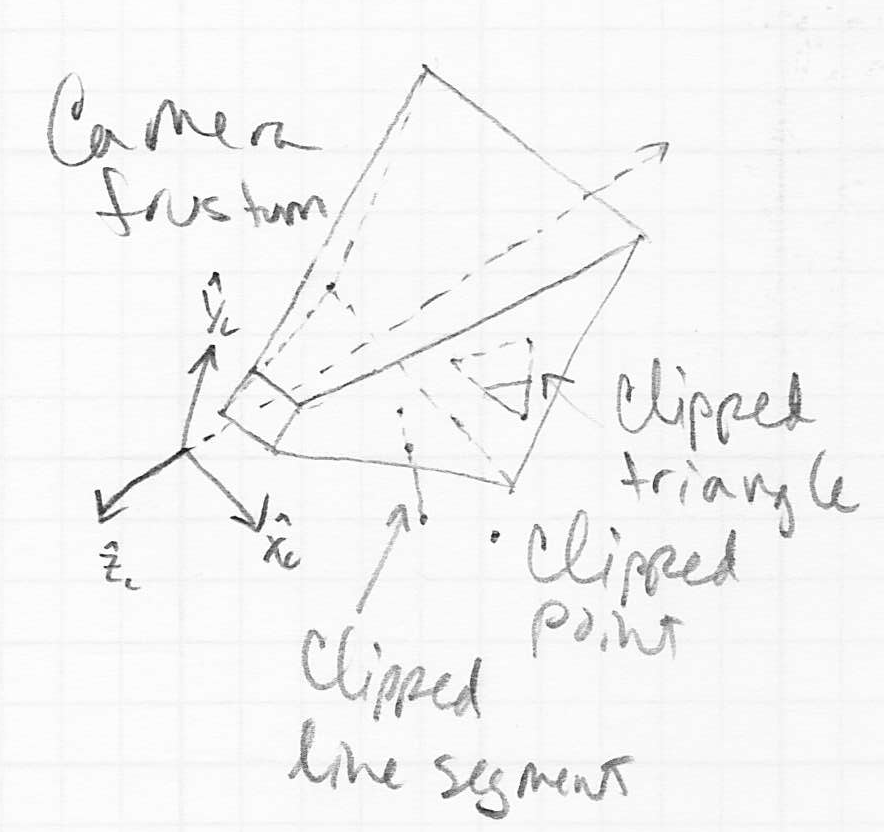 Camera
frustum
ŷc
ẑc
x̂c
Clipped
triangle
Clipped
point
Clipped
line segment